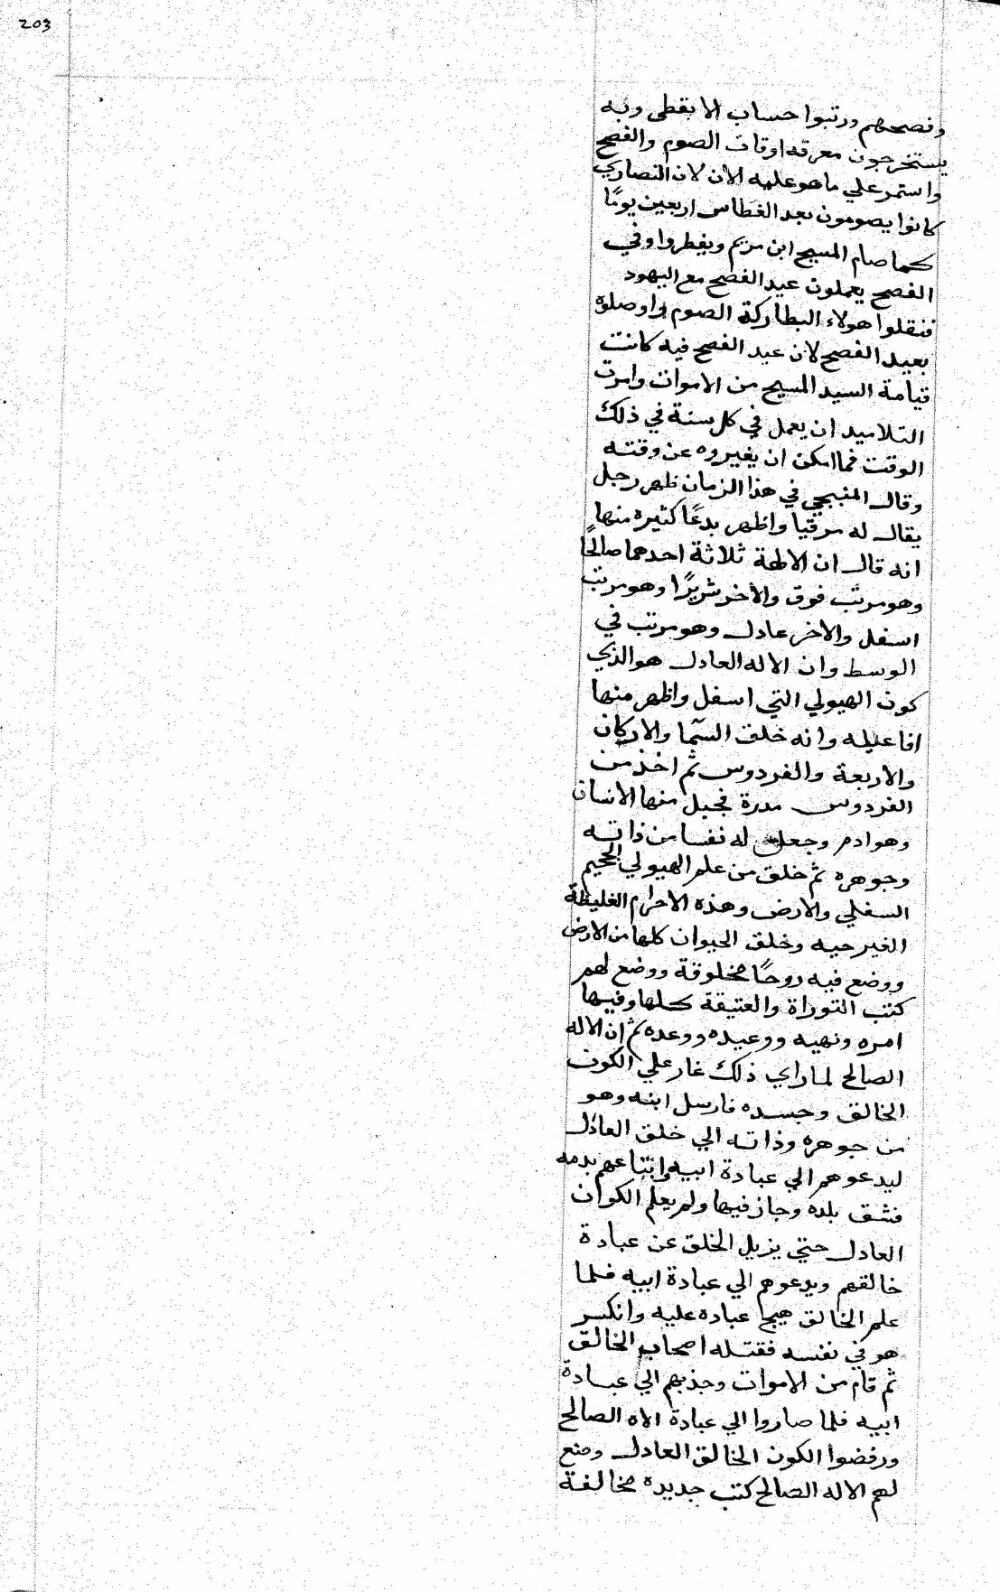 203
وفصحهم ورتبوا حساب الابقطي وبه
يستخرجون معرفه اوقات الصوم والفصح
واستمر علي ما هو عليه الان لان النصاري
كانوا يصومون بعد الغطاس اربعين يومًا
كما صام المسيح ابن مريم ويفطروا وفي
الفصح يعملون عيد الفصح مع اليهود
فنقلوا هولاء البطاركة الصوم واوصلوه
بعيد الفصح لان عيد الفصح فيه كانت
قيامة السيد المسيح من الاموات وامرت
التلاميد ان يعمل في كل سنة في ذلك
الوقت فما امكن ان يغيروه عن وقته
وقال المنبجي في هذا الزمان ظهر رجل
يقال له مرقيا واظهر بدعًا كثيره منها
انه قال ان الالهة ثلاثة احدهما صالحًا
وهو مرتب فوق والاخر شريرًا وهو مرتب
اسفل والاخر عادل وهو مرتب في
الوسط وان الاله العادل هو الذي
كون الهيولي التي اسفل واظهر منها
افاعيله وانه خلق السما والاركان
والاربعة والفردوس ثم اخذ من
الفردوس مدرة فجبل منها الانسان
وهو ادم وجعل له نفسا من ذاته
وجوهره ثم خلق من علم الهيولي الجحيم
السفلي والارض وهذه الاجرام الغليظة
الغير حيه وخلق الحيوان كلها من الارض
ووضع فيه روحًا مخلوقة ووضع لهم
كتب التوراة والعتيقة كلها وفيها
امره ونهيه ووعيده ووعده ثم ان الاله
الصالح لما راي ذلك غار علي الكون
الخالق وجسده فارسل ابنه وهو
من جوهره وذاته الي خلق العادل
ليدعوهم الي عبادة ابيه وابتاعهم بدمه
فشق بلده وجاز فيها ولم يعلم الكوان
العادل حتي يزيل الخلق عن عبادة
خالقهم ويدعوهم الي عبادة ابيه فلما
علم الخالق هيج عباده عليه وانكسر
هو في نفسه فقتله اصحاب الخالق
ثم قام من الاموات وجذبهم الي عبادة
ابيه فلما صاروا الي عبادة الاه الصالح
ورفضوا الكون الخالق العادل وضع
لهم الاله الصالح كتب جديده مخالفة